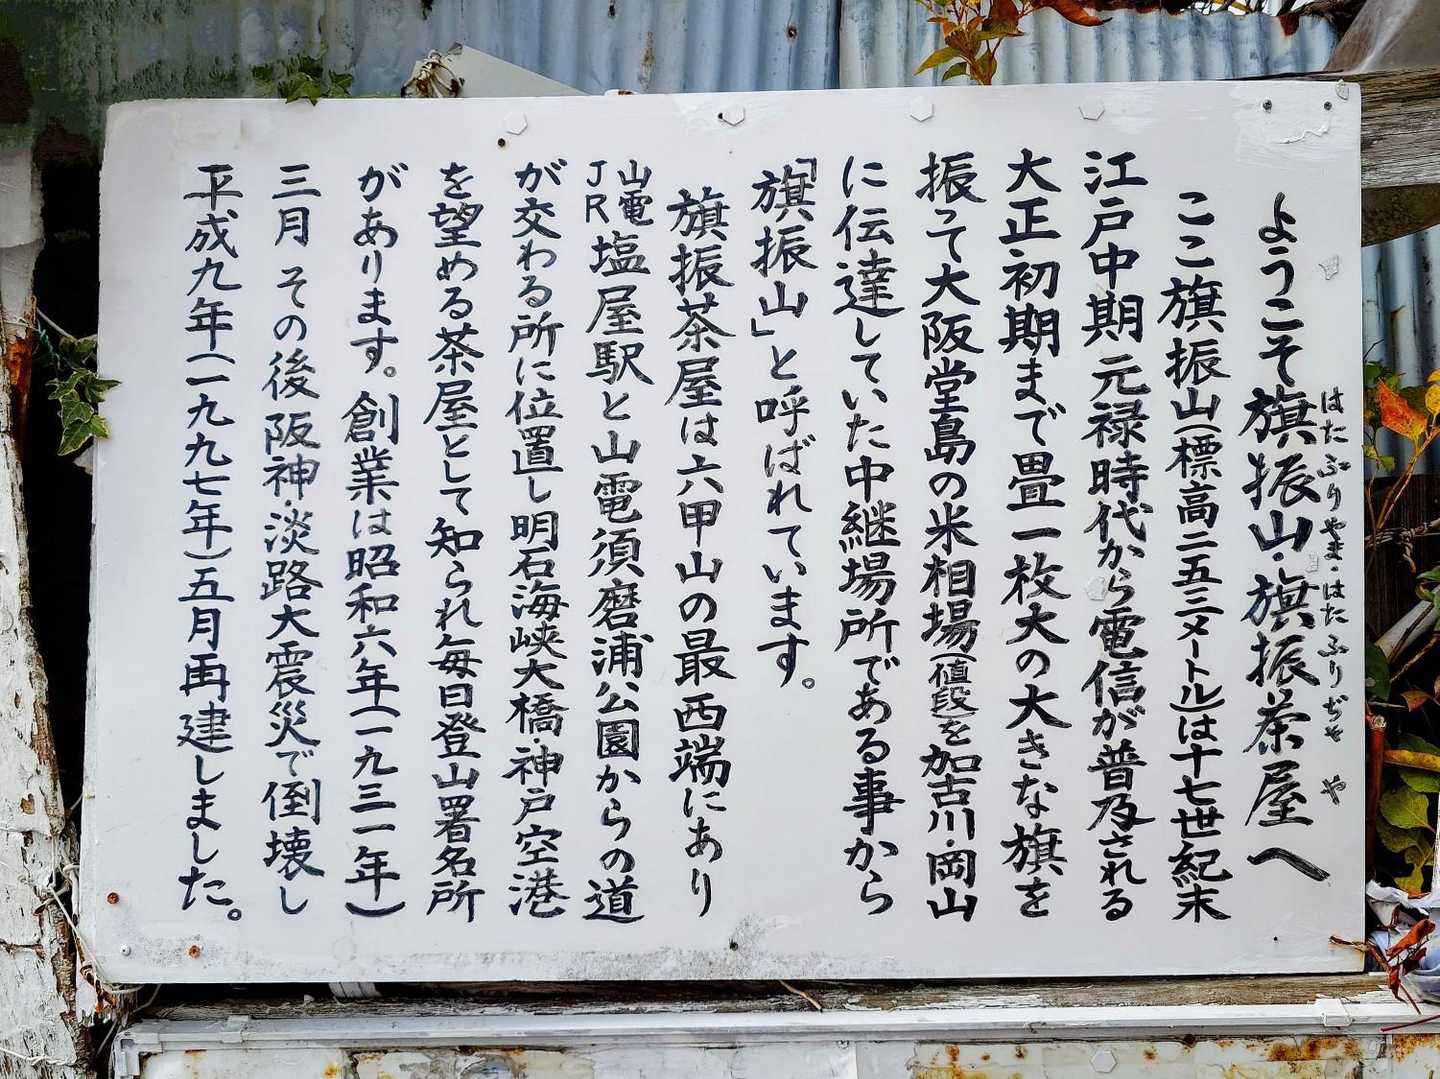 ようこそ旗振山・旗振茶屋へ
はたふりやま・はたふりぢゃや
ここ旗振山(標高二五三メートル)は十七世紀末
江戸中期 元禄時代から電信が普及される
大正初期まで畳一枚大の大きな旗を
振って大阪堂島の米相場(値段)を加古川・岡山
に伝達していた中継場所である事から
「旗振山」と呼ばれています。
旗振茶屋は六甲山の最西端にあり
山電JR塩屋駅と山電須磨浦公園からの道
が交わる所に位置し明石海峡大橋・神戸空港
を望める茶屋として知られ毎日登山署名所
があります。創業は昭和六年(一九三一年)
三月 その後阪神・淡路大震災で倒壊し
平成九年(一九九七年)五月再建しました。